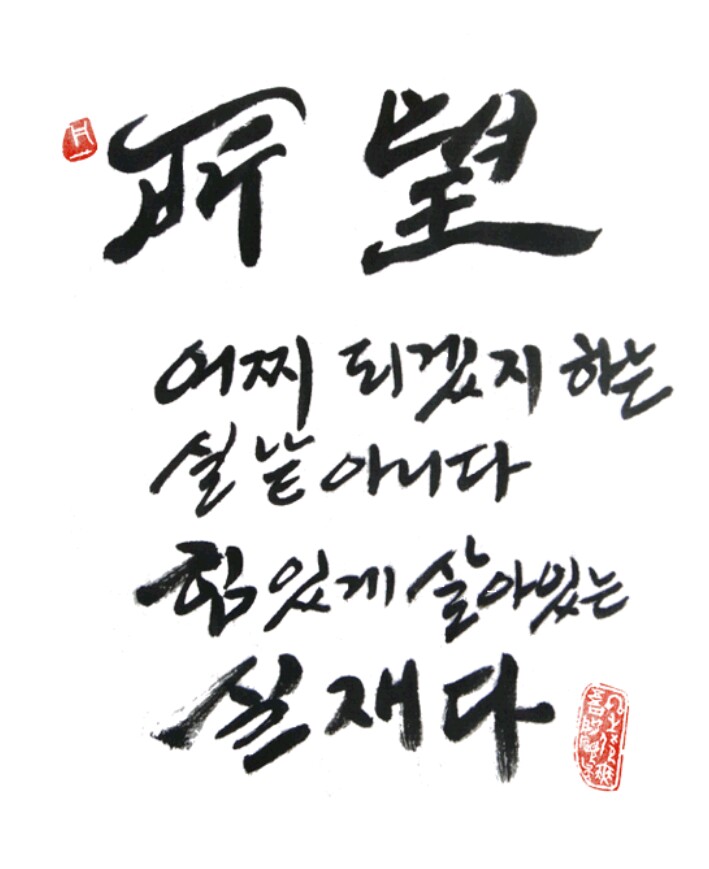 所望
어찌 되겠지 하는
실낱 아니다
힘있게 살아있는
실재다